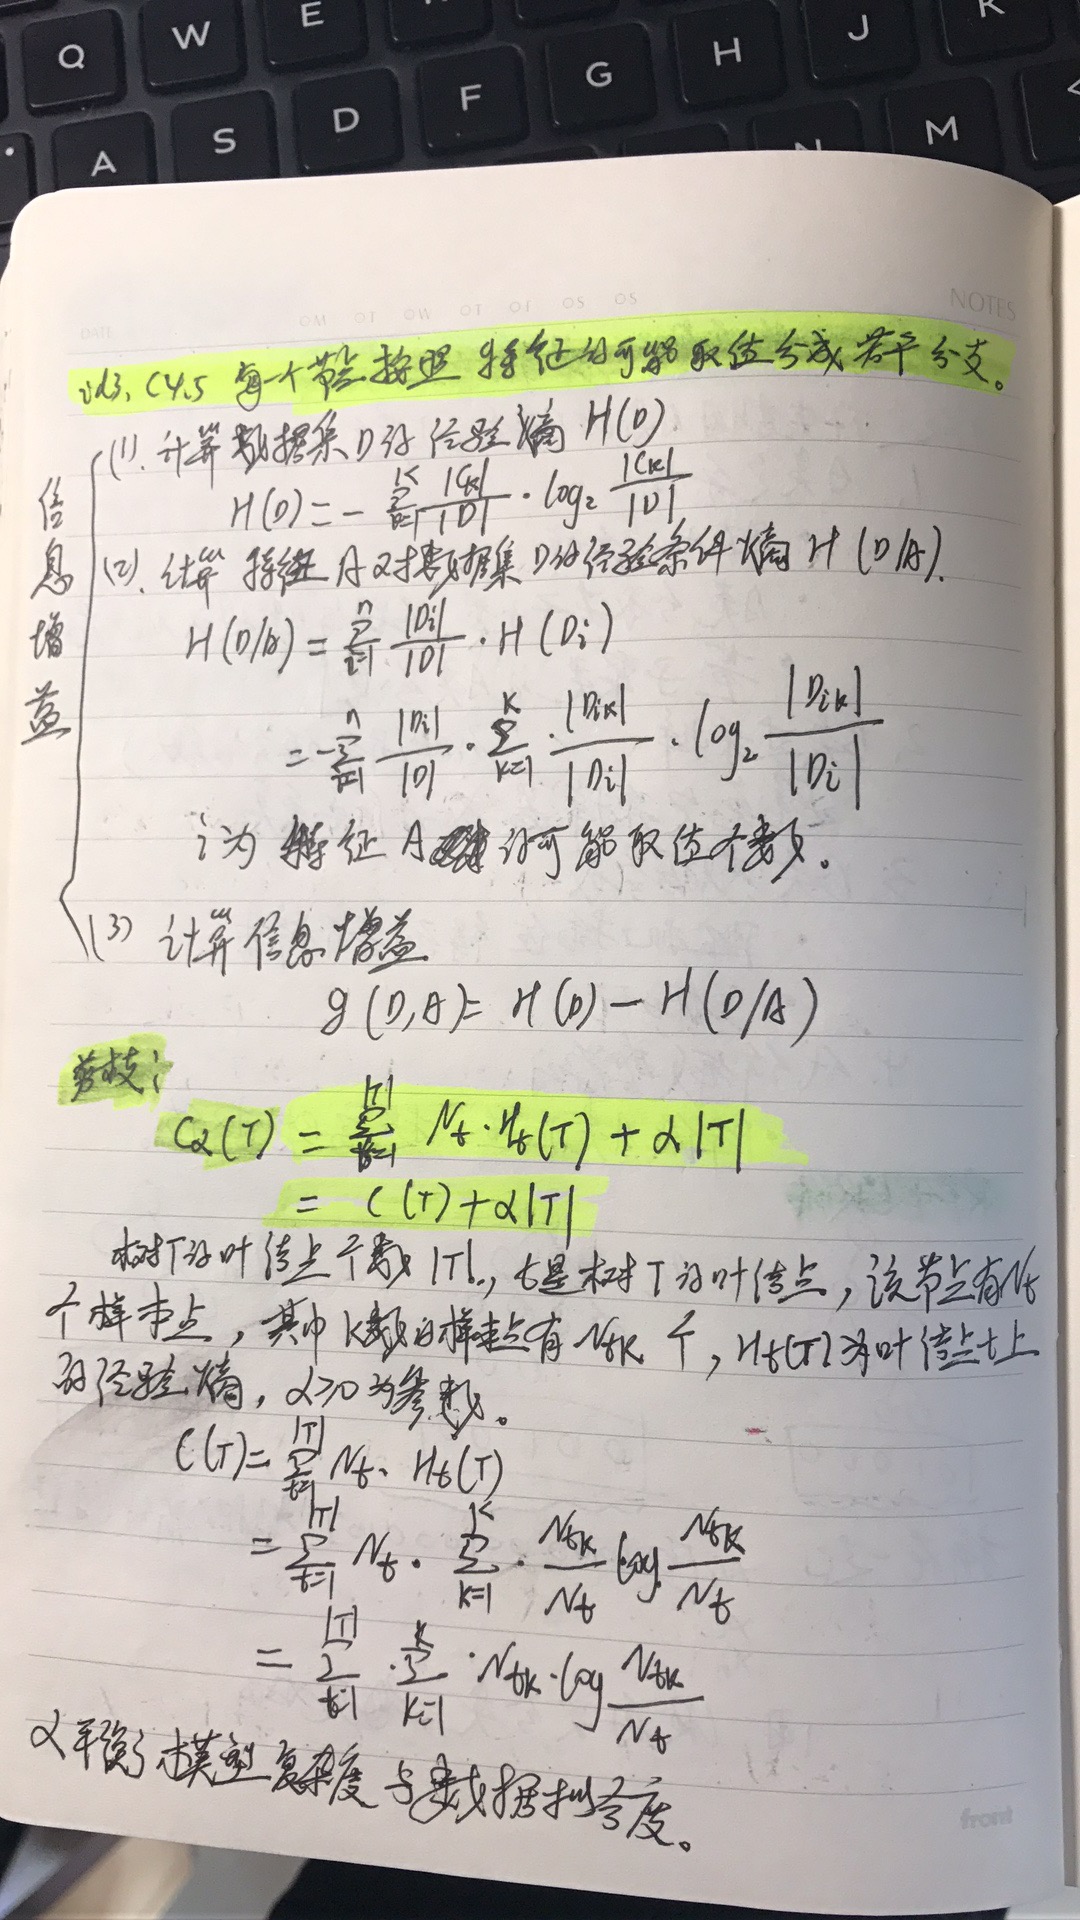 Q W E J K
A S D F G H N M
DATE
NOTES
id3、C4.5 每一个节点按照 特征的可能取值分成 若干分支。
信息增益
(1). 计算数据集D的经验熵 H(D)
H(D) = - ∑_{k=1}^{K} |Ck|/|D| · log₂ |Ck|/|D|
(2). 计算 特征 A 对数据集D的经验条件熵 H(D/A).
H(D/A) = ∑_{i=1}^{n} |Di|/|D| · H(Di)
= -∑_{i=1}^{n} |Di|/|D| · ∑_{k=1}^{K} · |Dik|/|Di| · log₂ |Dik|/|Di|
i为 特征 A 的可能取值个数。
(3) 计算信息增益
g(D,A) = H(D) - H(D/A)
剪枝:
Cα(T) = ∑_{t=1}^{|T|} Nt · Ht(T) + α|T|
= C(T) + α|T|
树T的叶结点个数|T|, t是树T的叶结点, 该节点有Nt
个样本点, 其中k类的样本点有Ntk个, Ht(T)为叶结点t上
的经验熵, α≥0为参数。
C(T) = ∑_{t=1}^{|T|} Nt · Ht(T)
= ∑_{t=1}^{|T|} Nt · ∑_{k=1}^{K} · Ntk/Nt log Ntk/Nt
= ∑_{t=1}^{|T|} · ∑_{k=1}^{K} · Ntk · log Ntk/Nt
α平衡了模型复杂度与数据拟合度。
front